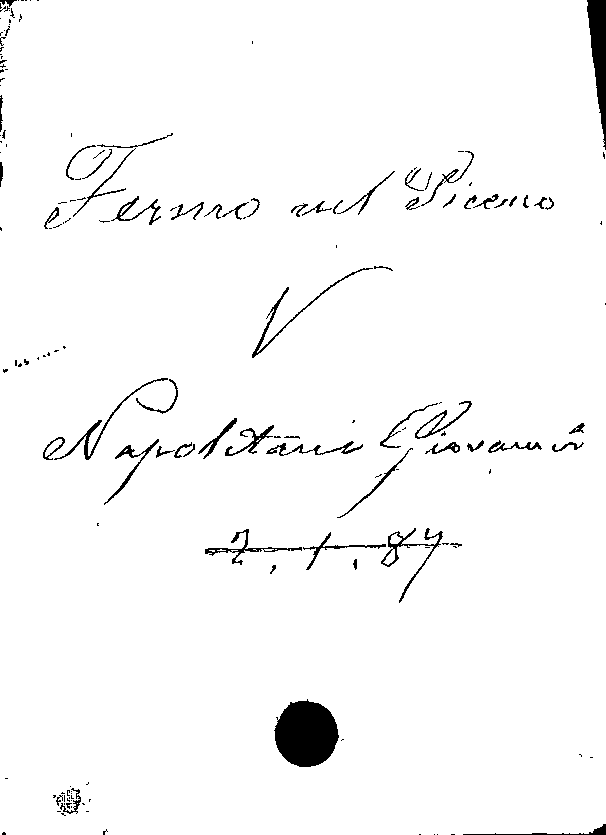 Fermo nel Piceno
V
Napolitani Giovanni
2.1.87